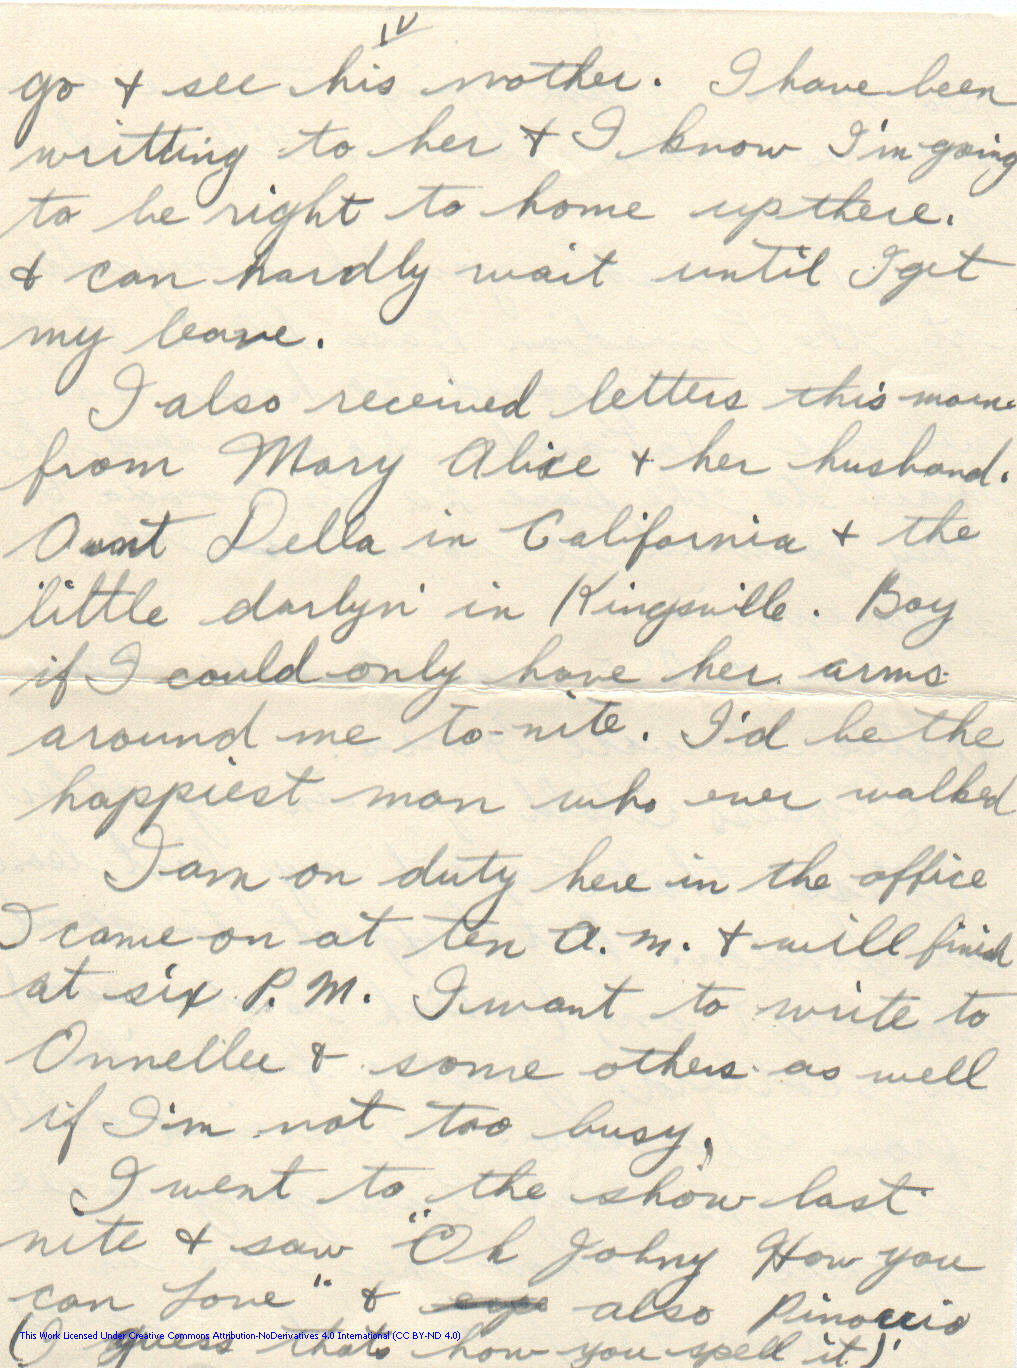 IV
go & see his mother. I have been
writting to her & I know I'm going
to be right to home up there.
& can hardly wait until I get
my leave.
I also received letters this morn
from Mary Alice & her husband.
Aunt Della in California & the
little darlyn' in Kingsville. Boy
if I could only have her arms
around me to-nite. I'd be the
happiest man who ever walked
I am on duty here in the office
I came on at ten A.M. & will finish
at six P.M. I want to write to
Onnellee & some others as well
if I'm not too busy.
I went to the show last
nite & saw "Oh Johny How you
can Love" & also Pinoccio
(I guess thats how you spell it)
This Work Licensed Under Creative Commons Attribution-NoDerivatives 4.0 International (CC BY-ND 4.0)